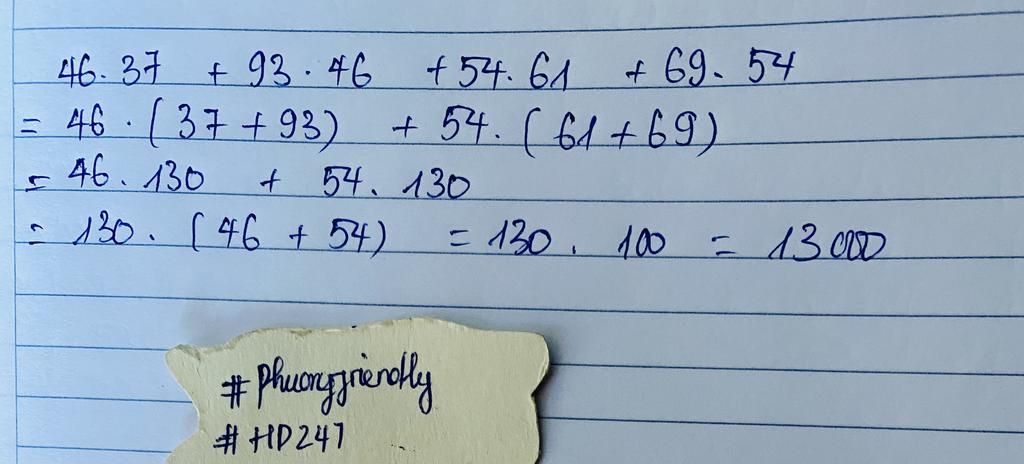 46.37 + 93.46 + 54.61 + 69.54
= 46.(37+93) + 54.(61+69)
= 46.130 + 54.130
= 130.(46+54) = 130.100 = 13000
#phuongfriendly
#HD247